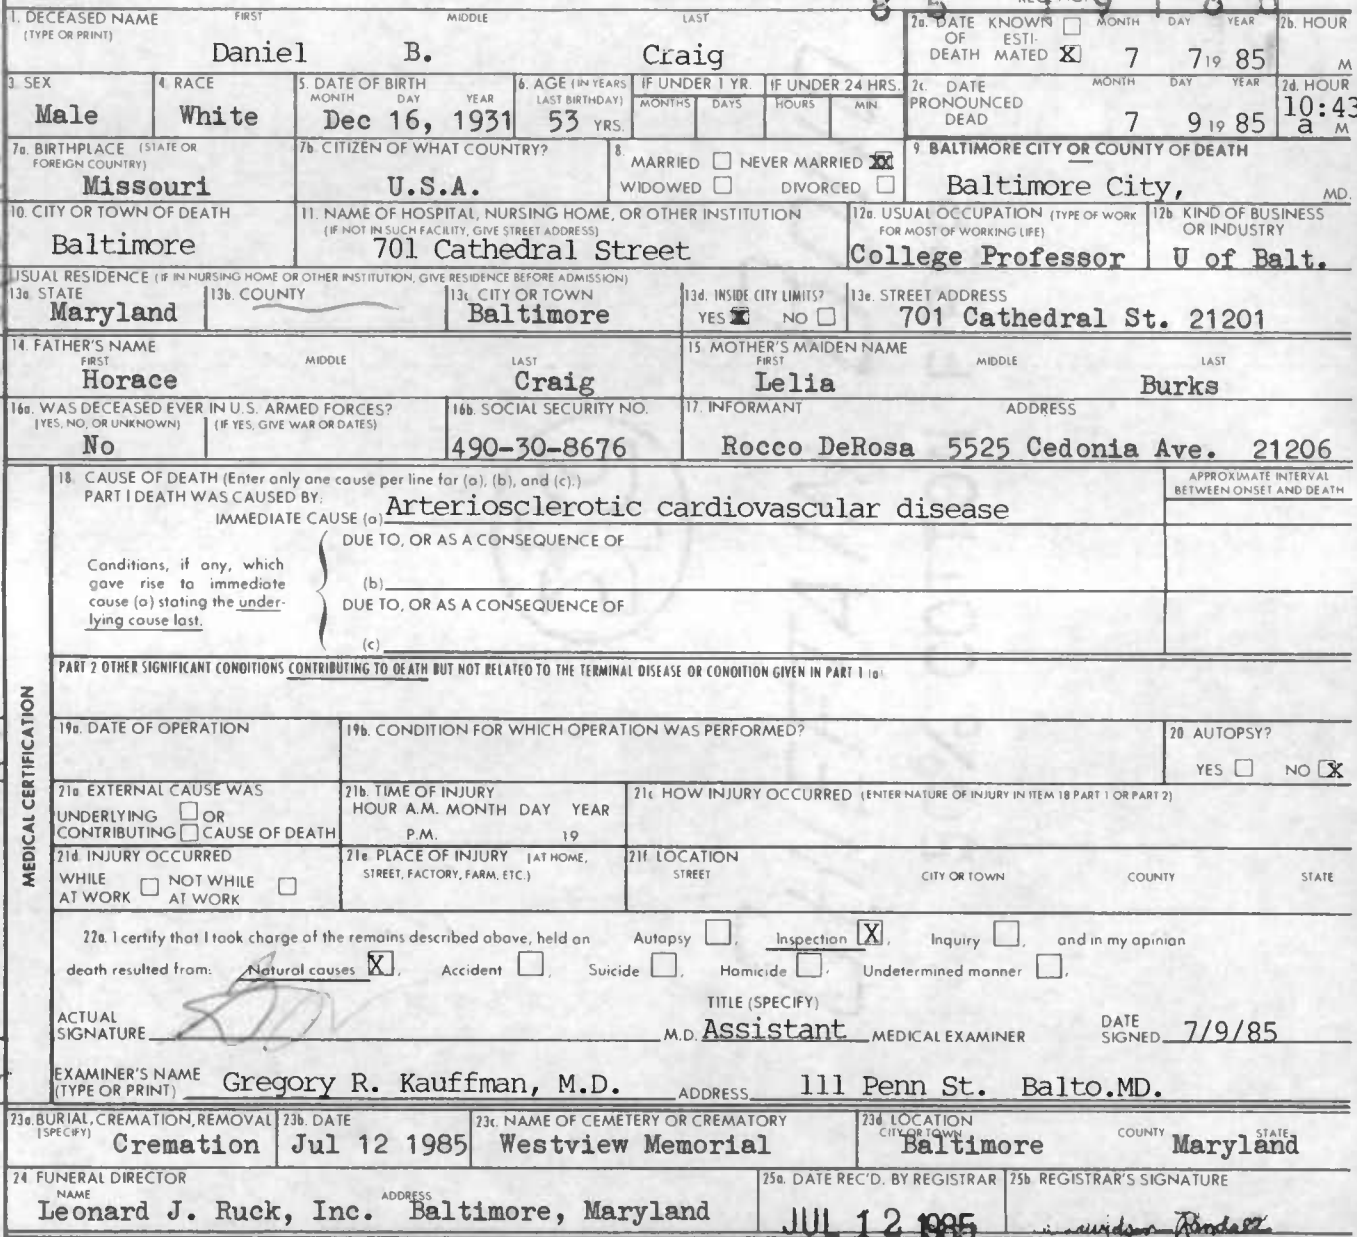 1. DECEASED NAME FIRST MIDDLE LAST
(TYPE OR PRINT)
Daniel B. Craig
2a. DATE KNOWN ☐ MONTH DAY YEAR
OF ESTI-
DEATH MATED ☒ 7 7 19 85
2b. HOUR
M
3. SEX
Male
4. RACE
White
5. DATE OF BIRTH
MONTH DAY YEAR
Dec 16, 1931
6. AGE (IN YEARS
LAST BIRTHDAY)
53 YRS.
IF UNDER 1 YR.
MONTHS DAYS
IF UNDER 24 HRS.
HOURS MIN.
2c. DATE MONTH DAY YEAR
PRONOUNCED
DEAD 7 9 19 85
2d. HOUR
10:43
a M
7a. BIRTHPLACE (STATE OR
FOREIGN COUNTRY)
Missouri
7b. CITIZEN OF WHAT COUNTRY?
U.S.A.
8.
MARRIED ☐ NEVER MARRIED ☒
WIDOWED ☐ DIVORCED ☐
9. BALTIMORE CITY OR COUNTY OF DEATH
Baltimore City, MD.
10. CITY OR TOWN OF DEATH
Baltimore
11. NAME OF HOSPITAL, NURSING HOME, OR OTHER INSTITUTION
(IF NOT IN SUCH FACILITY, GIVE STREET ADDRESS)
701 Cathedral Street
12a. USUAL OCCUPATION (TYPE OF WORK
FOR MOST OF WORKING LIFE)
College Professor
12b. KIND OF BUSINESS
OR INDUSTRY
U of Balt.
USUAL RESIDENCE (IF IN NURSING HOME OR OTHER INSTITUTION, GIVE RESIDENCE BEFORE ADMISSION)
13a. STATE
Maryland
13b. COUNTY
13c. CITY OR TOWN
Baltimore
13d. INSIDE CITY LIMITS?
YES ☒ NO ☐
13e. STREET ADDRESS
701 Cathedral St. 21201
14. FATHER'S NAME
FIRST MIDDLE LAST
Horace Craig
15. MOTHER'S MAIDEN NAME
FIRST MIDDLE LAST
Lelia Burks
16a. WAS DECEASED EVER IN U.S. ARMED FORCES?
(YES, NO, OR UNKNOWN) (IF YES, GIVE WAR OR DATES)
No
16b. SOCIAL SECURITY NO.
490-30-8676
17. INFORMANT ADDRESS
Rocco DeRosa 5525 Cedonia Ave. 21206
MEDICAL CERTIFICATION
18. CAUSE OF DEATH (Enter only one cause per line for (a), (b), and (c).)
PART I DEATH WAS CAUSED BY:
IMMEDIATE CAUSE (a) Arteriosclerotic cardiovascular disease
APPROXIMATE INTERVAL
BETWEEN ONSET AND DEATH
Conditions, if any, which
gave rise to immediate
cause (a) stating the under-
lying cause last.
DUE TO, OR AS A CONSEQUENCE OF
(b)
DUE TO, OR AS A CONSEQUENCE OF
(c)
PART 2 OTHER SIGNIFICANT CONDITIONS CONTRIBUTING TO DEATH BUT NOT RELATED TO THE TERMINAL DISEASE OR CONDITION GIVEN IN PART 1 (a)
19a. DATE OF OPERATION
19b. CONDITION FOR WHICH OPERATION WAS PERFORMED?
20 AUTOPSY?
YES ☐ NO ☒
21a EXTERNAL CAUSE WAS
UNDERLYING ☐ OR
CONTRIBUTING ☐ CAUSE OF DEATH
21b. TIME OF INJURY
HOUR A.M. MONTH DAY YEAR
P.M. 19
21c HOW INJURY OCCURRED (ENTER NATURE OF INJURY IN ITEM 18 PART 1 OR PART 2)
21d INJURY OCCURRED
WHILE ☐ NOT WHILE ☐
AT WORK AT WORK
21e PLACE OF INJURY (AT HOME,
STREET, FACTORY, FARM, ETC.)
21f LOCATION
STREET CITY OR TOWN COUNTY STATE
22a. I certify that I took charge of the remains described above, held an Autopsy ☐, Inspection ☒, Inquiry ☐, and in my opinion
death resulted from: Natural causes ☒, Accident ☐, Suicide ☐, Homicide ☐, Undetermined manner ☐.
ACTUAL
SIGNATURE M.D.
TITLE (SPECIFY)
Assistant MEDICAL EXAMINER
DATE
SIGNED 7/9/85
EXAMINER'S NAME
(TYPE OR PRINT) Gregory R. Kauffman, M.D. ADDRESS 111 Penn St. Balto.MD.
23a. BURIAL, CREMATION, REMOVAL
(SPECIFY)
Cremation
23b. DATE
Jul 12 1985
23c. NAME OF CEMETERY OR CREMATORY
Westview Memorial
23d. LOCATION
CITY OR TOWN COUNTY STATE
Baltimore Maryland
24 FUNERAL DIRECTOR
NAME ADDRESS
Leonard J. Ruck, Inc. Baltimore, Maryland
25a. DATE REC'D. BY REGISTRAR
JUL 12 1985
25b. REGISTRAR'S SIGNATURE
Randall